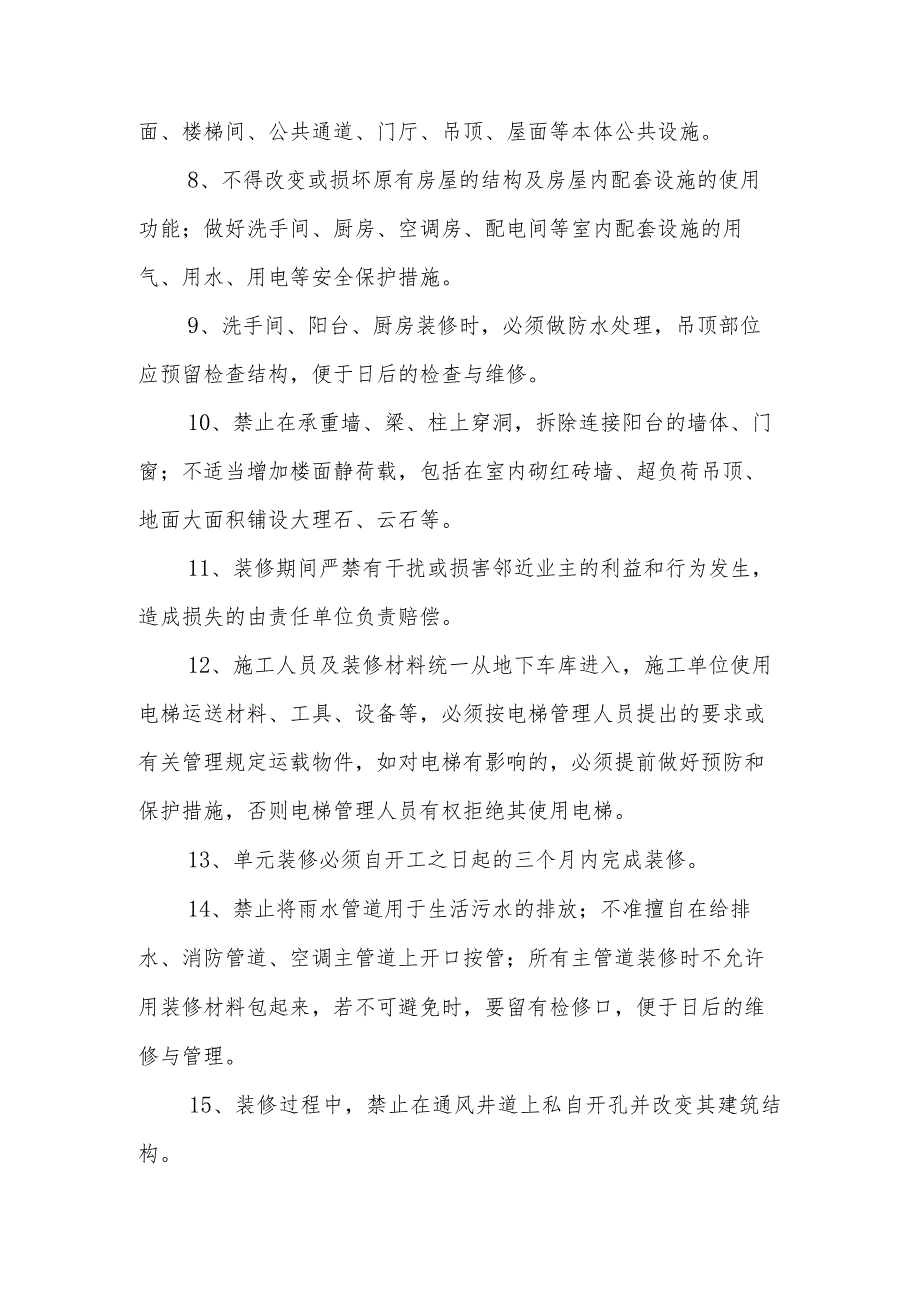 面、楼梯间、公共通道、门厅、吊顶、屋面等本体公共设施。
8、不得改变或损坏原有房屋的结构及房屋内配套设施的使用
功能；做好洗手间、厨房、空调房、配电间等室内配套设施的用
气、用水、用电等安全保护措施。
9、洗手间、阳台、厨房装修时，必须做防水处理，吊顶部位
应预留检查结构，便于日后的检查与维修。
10、禁止在承重墙、梁、柱上穿洞，拆除连接阳台的墙体、门
窗；不适当增加楼面静荷载，包括在室内砌红砖墙、超负荷吊顶、
地面大面积铺设大理石、云石等。
11、装修期间严禁有干扰或损害邻近业主的利益和行为发生，
造成损失的由责任单位负责赔偿。
12、施工人员及装修材料统一从地下车库进入，施工单位使用
电梯运送材料、工具、设备等，必须按电梯管理人员提出的要求或
有关管理规定运载物件，如对电梯有影响的，必须提前做好预防和
保护措施，否则电梯管理人员有权拒绝其使用电梯。
13、单元装修必须自开工之日起的三个月内完成装修。
14、禁止将雨水管道用于生活污水的排放；不准擅自在给排
水、消防管道、空调主管道上开口按管；所有主管道装修时不允许
用装修材料包起来，若不可避免时，要留有检修口，便于日后的维
修与管理。
15、装修过程中，禁止在通风井道上私自开孔并改变其建筑结
构。